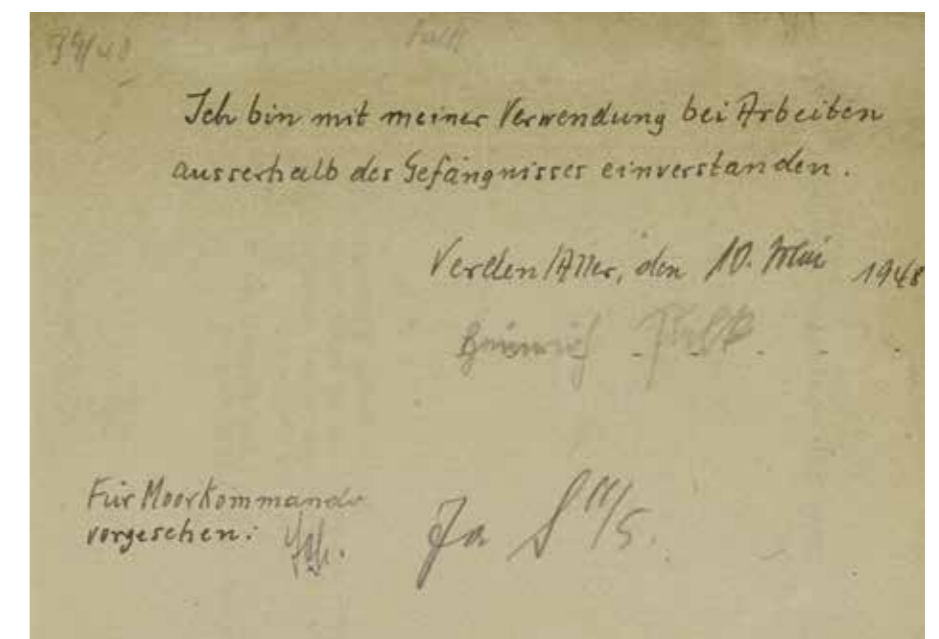 39/48 Falk
Ich bin mit meiner Verwendung bei Arbeiten
ausserhalb des Gefängnisses einverstanden.
Verden/Aller, den 10. Mai 1948
Heinrich Falk
Für Moorkommando
vorgesehen:
Ja S 11/5.